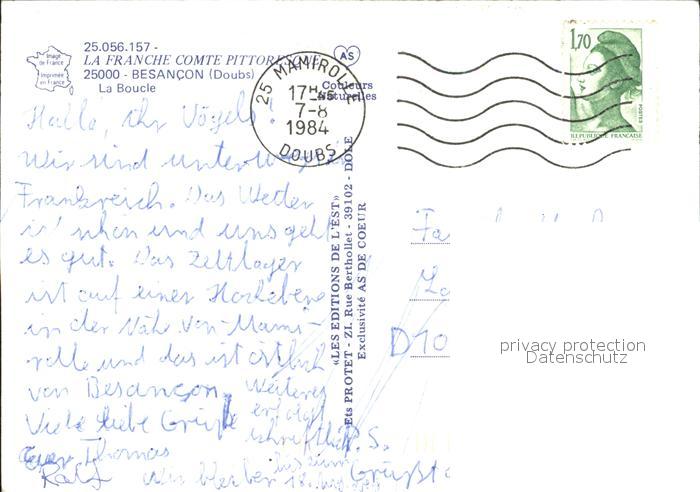 25.056.157 -
LA FRANCHE COMTE PITTORESQUE
25000 - BESANÇON (Doubs)
La Boucle
Image de France
Imprimée en France
AS
Couleurs Naturelles
25 MAMIROLLE
17H45
7-8
1984
DOUBS
1,70
POSTES
REPUBLIQUE FRANCAISE
Hallo, ihr Vögels!
Wir sind unterwegs
Frankreich. Das Wetter
is' schön und uns geht
es gut. Das Zeltlager
ist auf einer Hochebene
in der Nähe von Mami-
rolle und das ist östlich
von Besançon. Weiteres
erfolgt
schriftlich
Viele liebe Grüße
Euer Thomas
Ralf
Wir bleiben bis zum
18.
P.S.
Grüßt
«LES EDITIONS DE L'EST»
Ets PROTET - ZI. Rue Berthollet - 39102 - DOLE
Exclusivité AS DE COEUR
Fa
D 10
privacy protection
Datenschutz